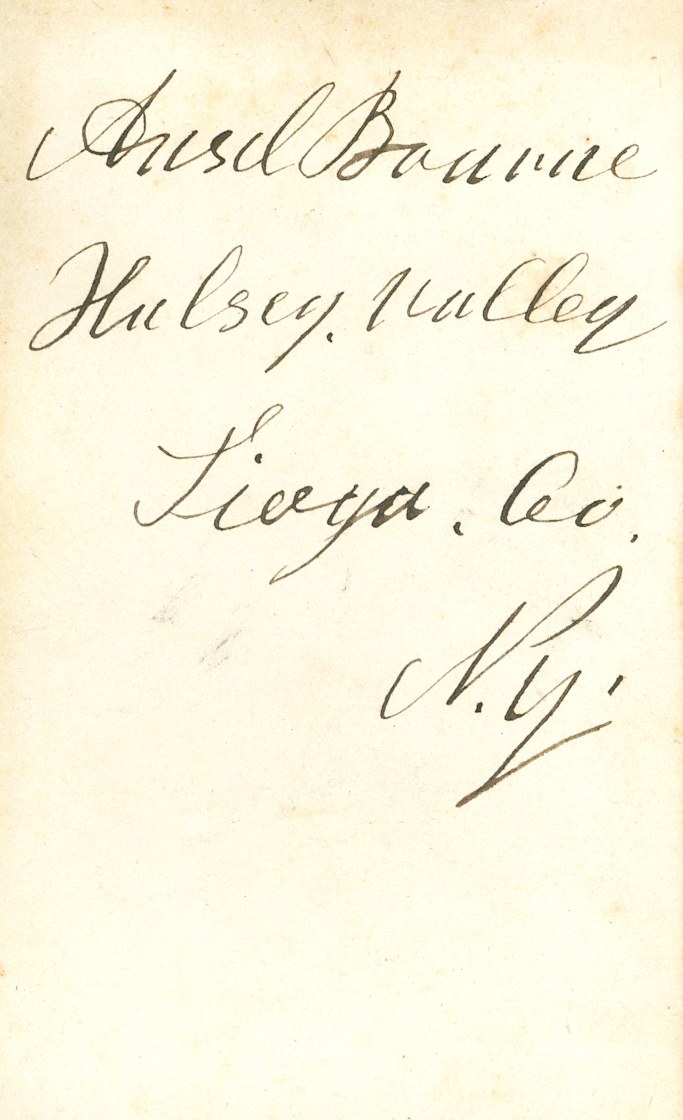 Ansel Bourne
Halsey. Valley
Tioga. Co.
N.Y.